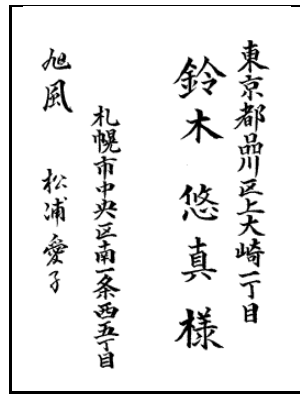 東京都品川区上大崎一丁目
鈴木 悠真 様
札幌市中央区南一条西五丁目
旭風 松浦愛子